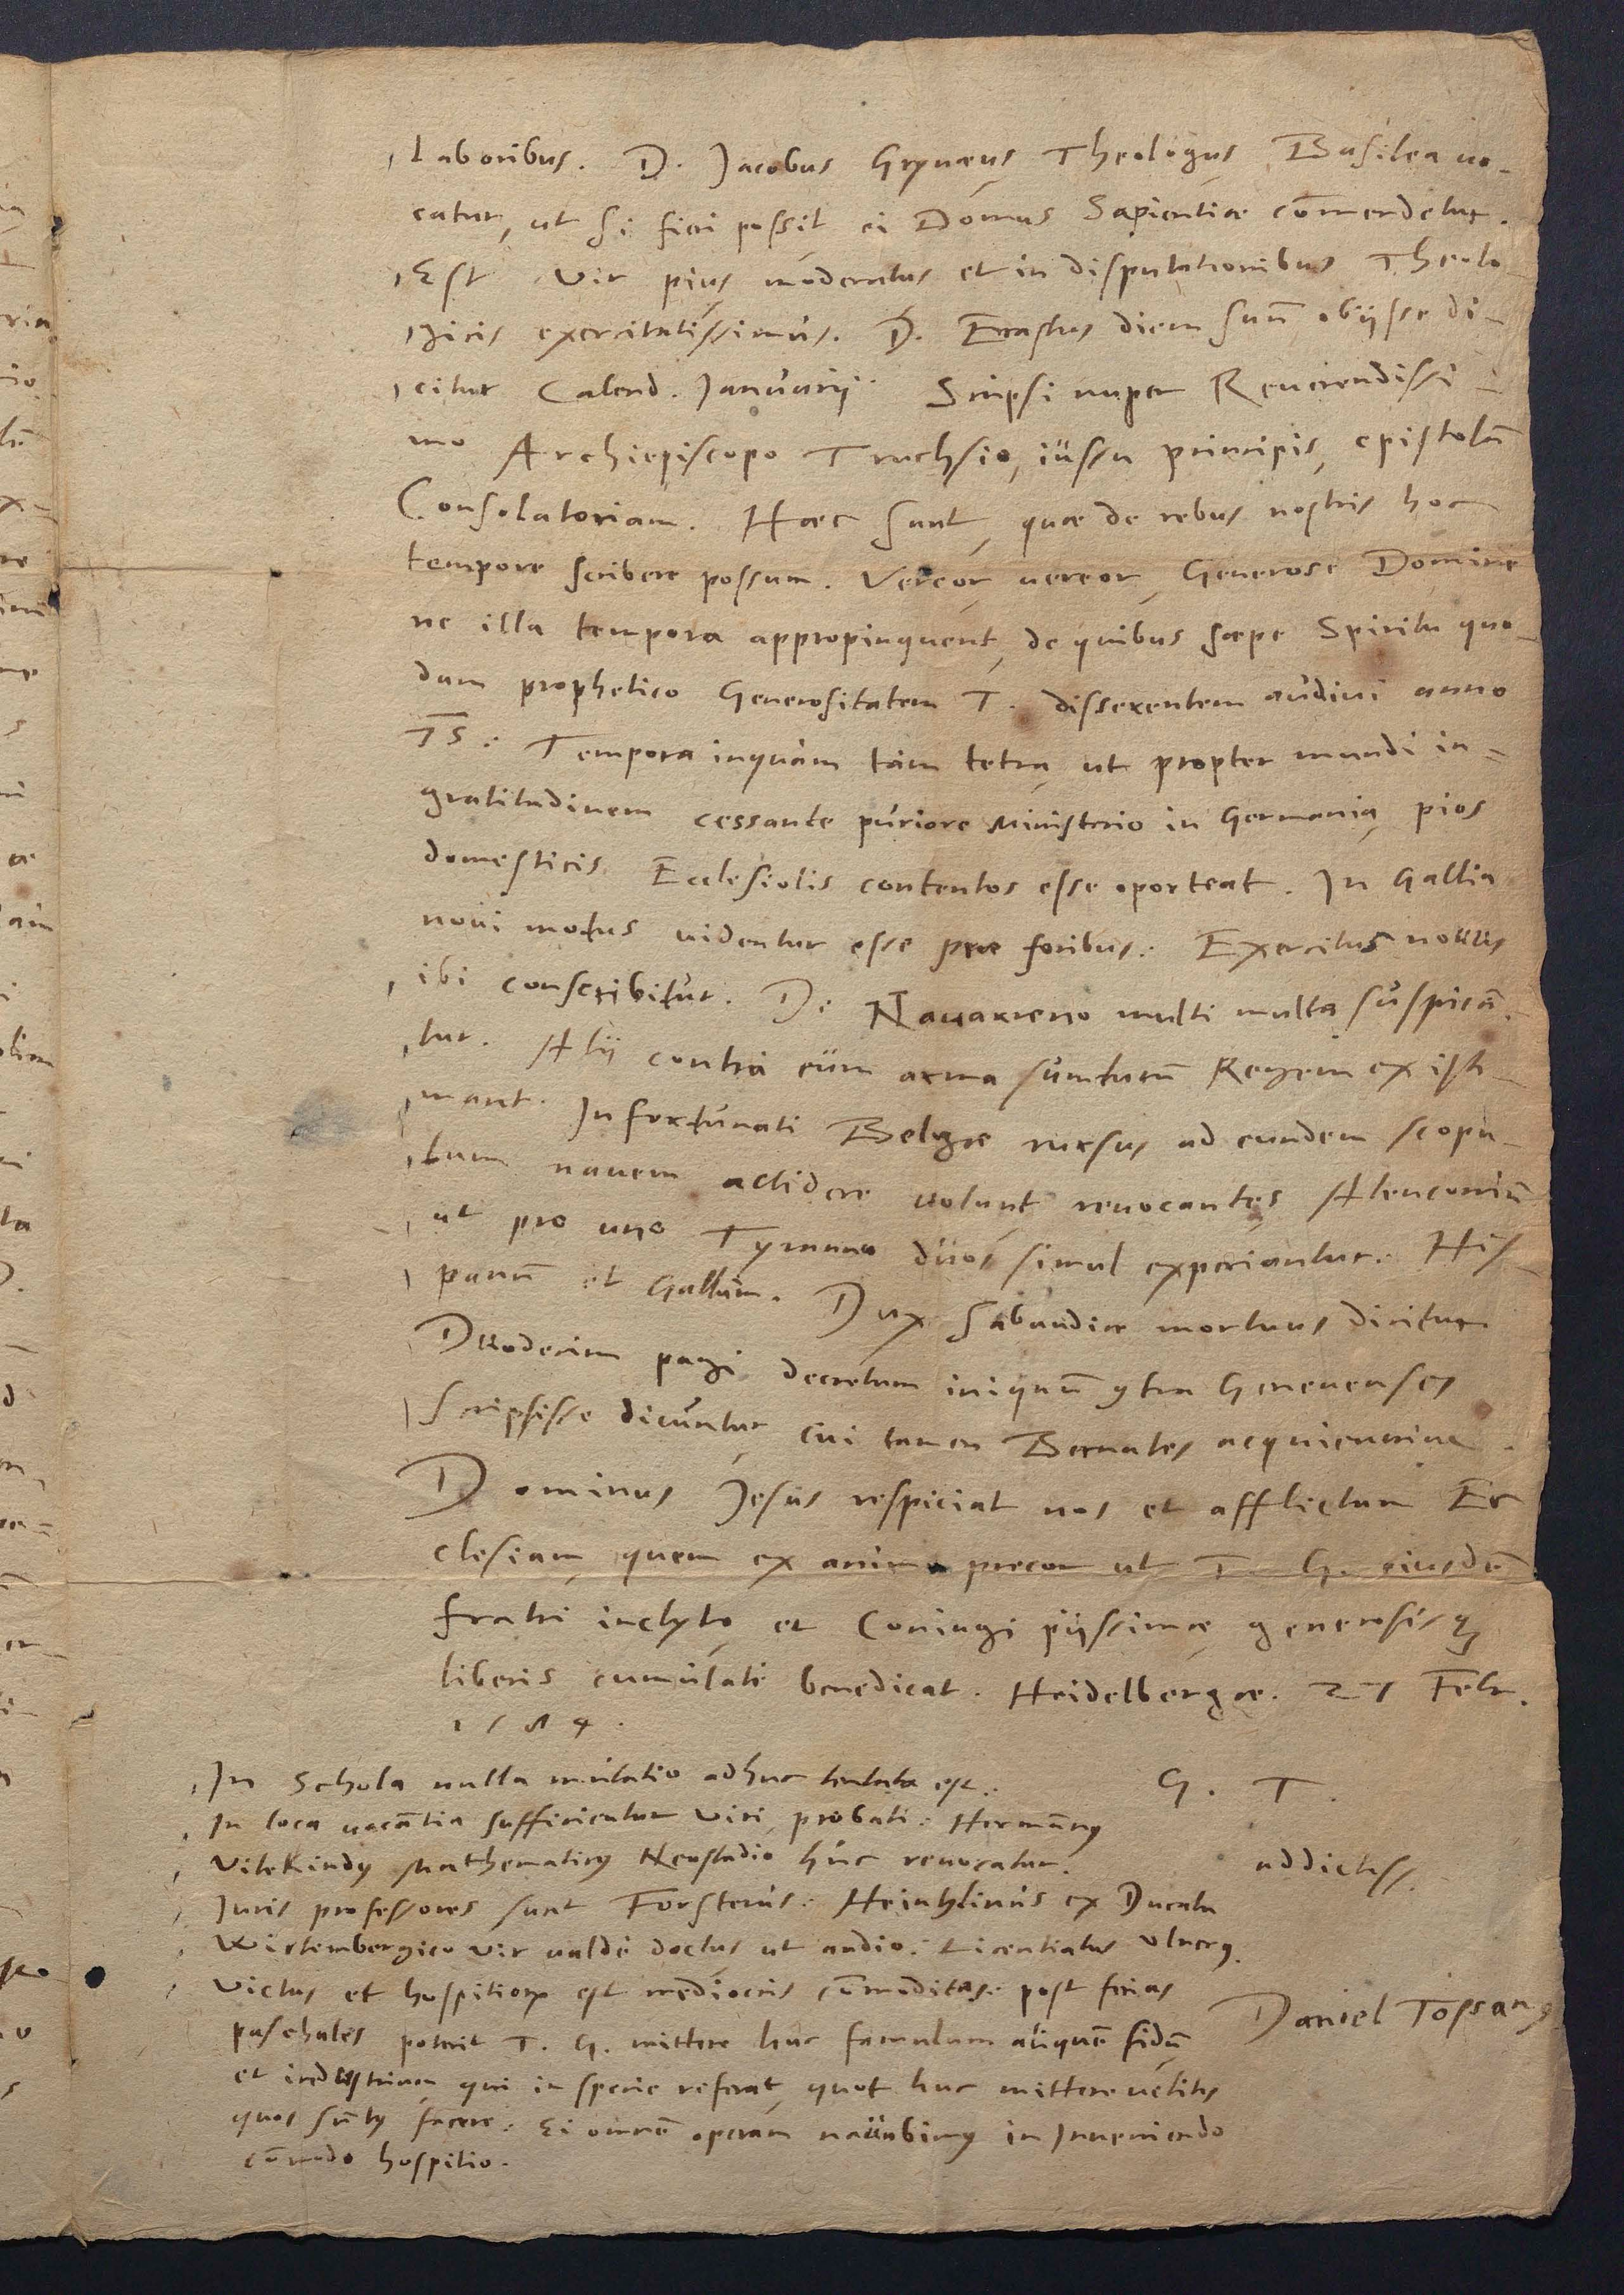 laboribus. D. Jacobus Grynæus Theologus Basilea uo-
catur, ut si fieri possit ei Domus Sapientiæ cōmendetur.
Est vir pius moderatus et in disputationibus Theolo
gicis exercitatissimus. D. Erastus diem suū obijsse di-
citur Calend. Januarij. Scripsi nuper Reuerendissi-
mo Archiepiscopo Truchsio, iussu principis, epistolā
Consolatoriam. Hæc sunt, quæ de rebus nostris hoc
tempore scribere possum. Vereor, uereor, Generose Domine
ne illa tempora appropinquent, de quibus sæpe Spiritu quo-
dam prophetico Generositatem T. disserentem audiui anno
75: Tempora inquam tam tetra, ut propter mundi in-
gratitudinem cessante puriore Ministerio in Germania, pios
domesticis Ecclesiolis contentos esse oporteat. In Gallia
noui motus uidentur esse præ foribus: Exercitus nouus
ibi conscribitur. De Nauarreno multi multa suspicā-
tur. Alij contra eum arma sumturū Regem existi-
mant. Infortunati Belgæ rursus ad eundem scopu-
lum nauem allidere uolunt, reuocantes Alenconiū
ut pro uno Tyranno duos simul experiantur. His-
panū et Gallum. Dux Sabaudiæ mortuus dicitur
Duodecim pagi decretum iniquū ꝯtra Geneuenses
scripsisse dicuntur, cui tamen Bernates acquieuerint.
Dominus Jesus respiciat nos et afflictam Ec
clesiam, quem ex animo precor ut T. G. eiusdē
fratri inclyto, et Coniugi pijssimæ, generosisqꝫ
liberis cumulate benedicat. Heidelbergæ. 27 Febr.
1584.
G. T.
addictiss.
Daniel Tossanꝰ
In Schola nulla mutatio adhuc tentata est:
In loca uacātia sufficiuntur viri probati: Hermānꝰ
Vitekindꝰ Mathematicꝰ Neostadio huc reuocatur.
Juris professores sunt Forsterus: Heinhlinus ex Ducatu
Wirtembergico vir ualde doctus ut audio: Licentiatus
Victus et hospitiorꝝ est mediocris cōmoditas: post ferias
paschales poterit T. G. mittere huc famulum aliquē fidū
et industrium, qui in specie referat, quot huc mittere uelitis
quos sūtꝰ facere: Ei omnē operam nauabimꝰ in Jnueniendo
cōmodo hospitio.